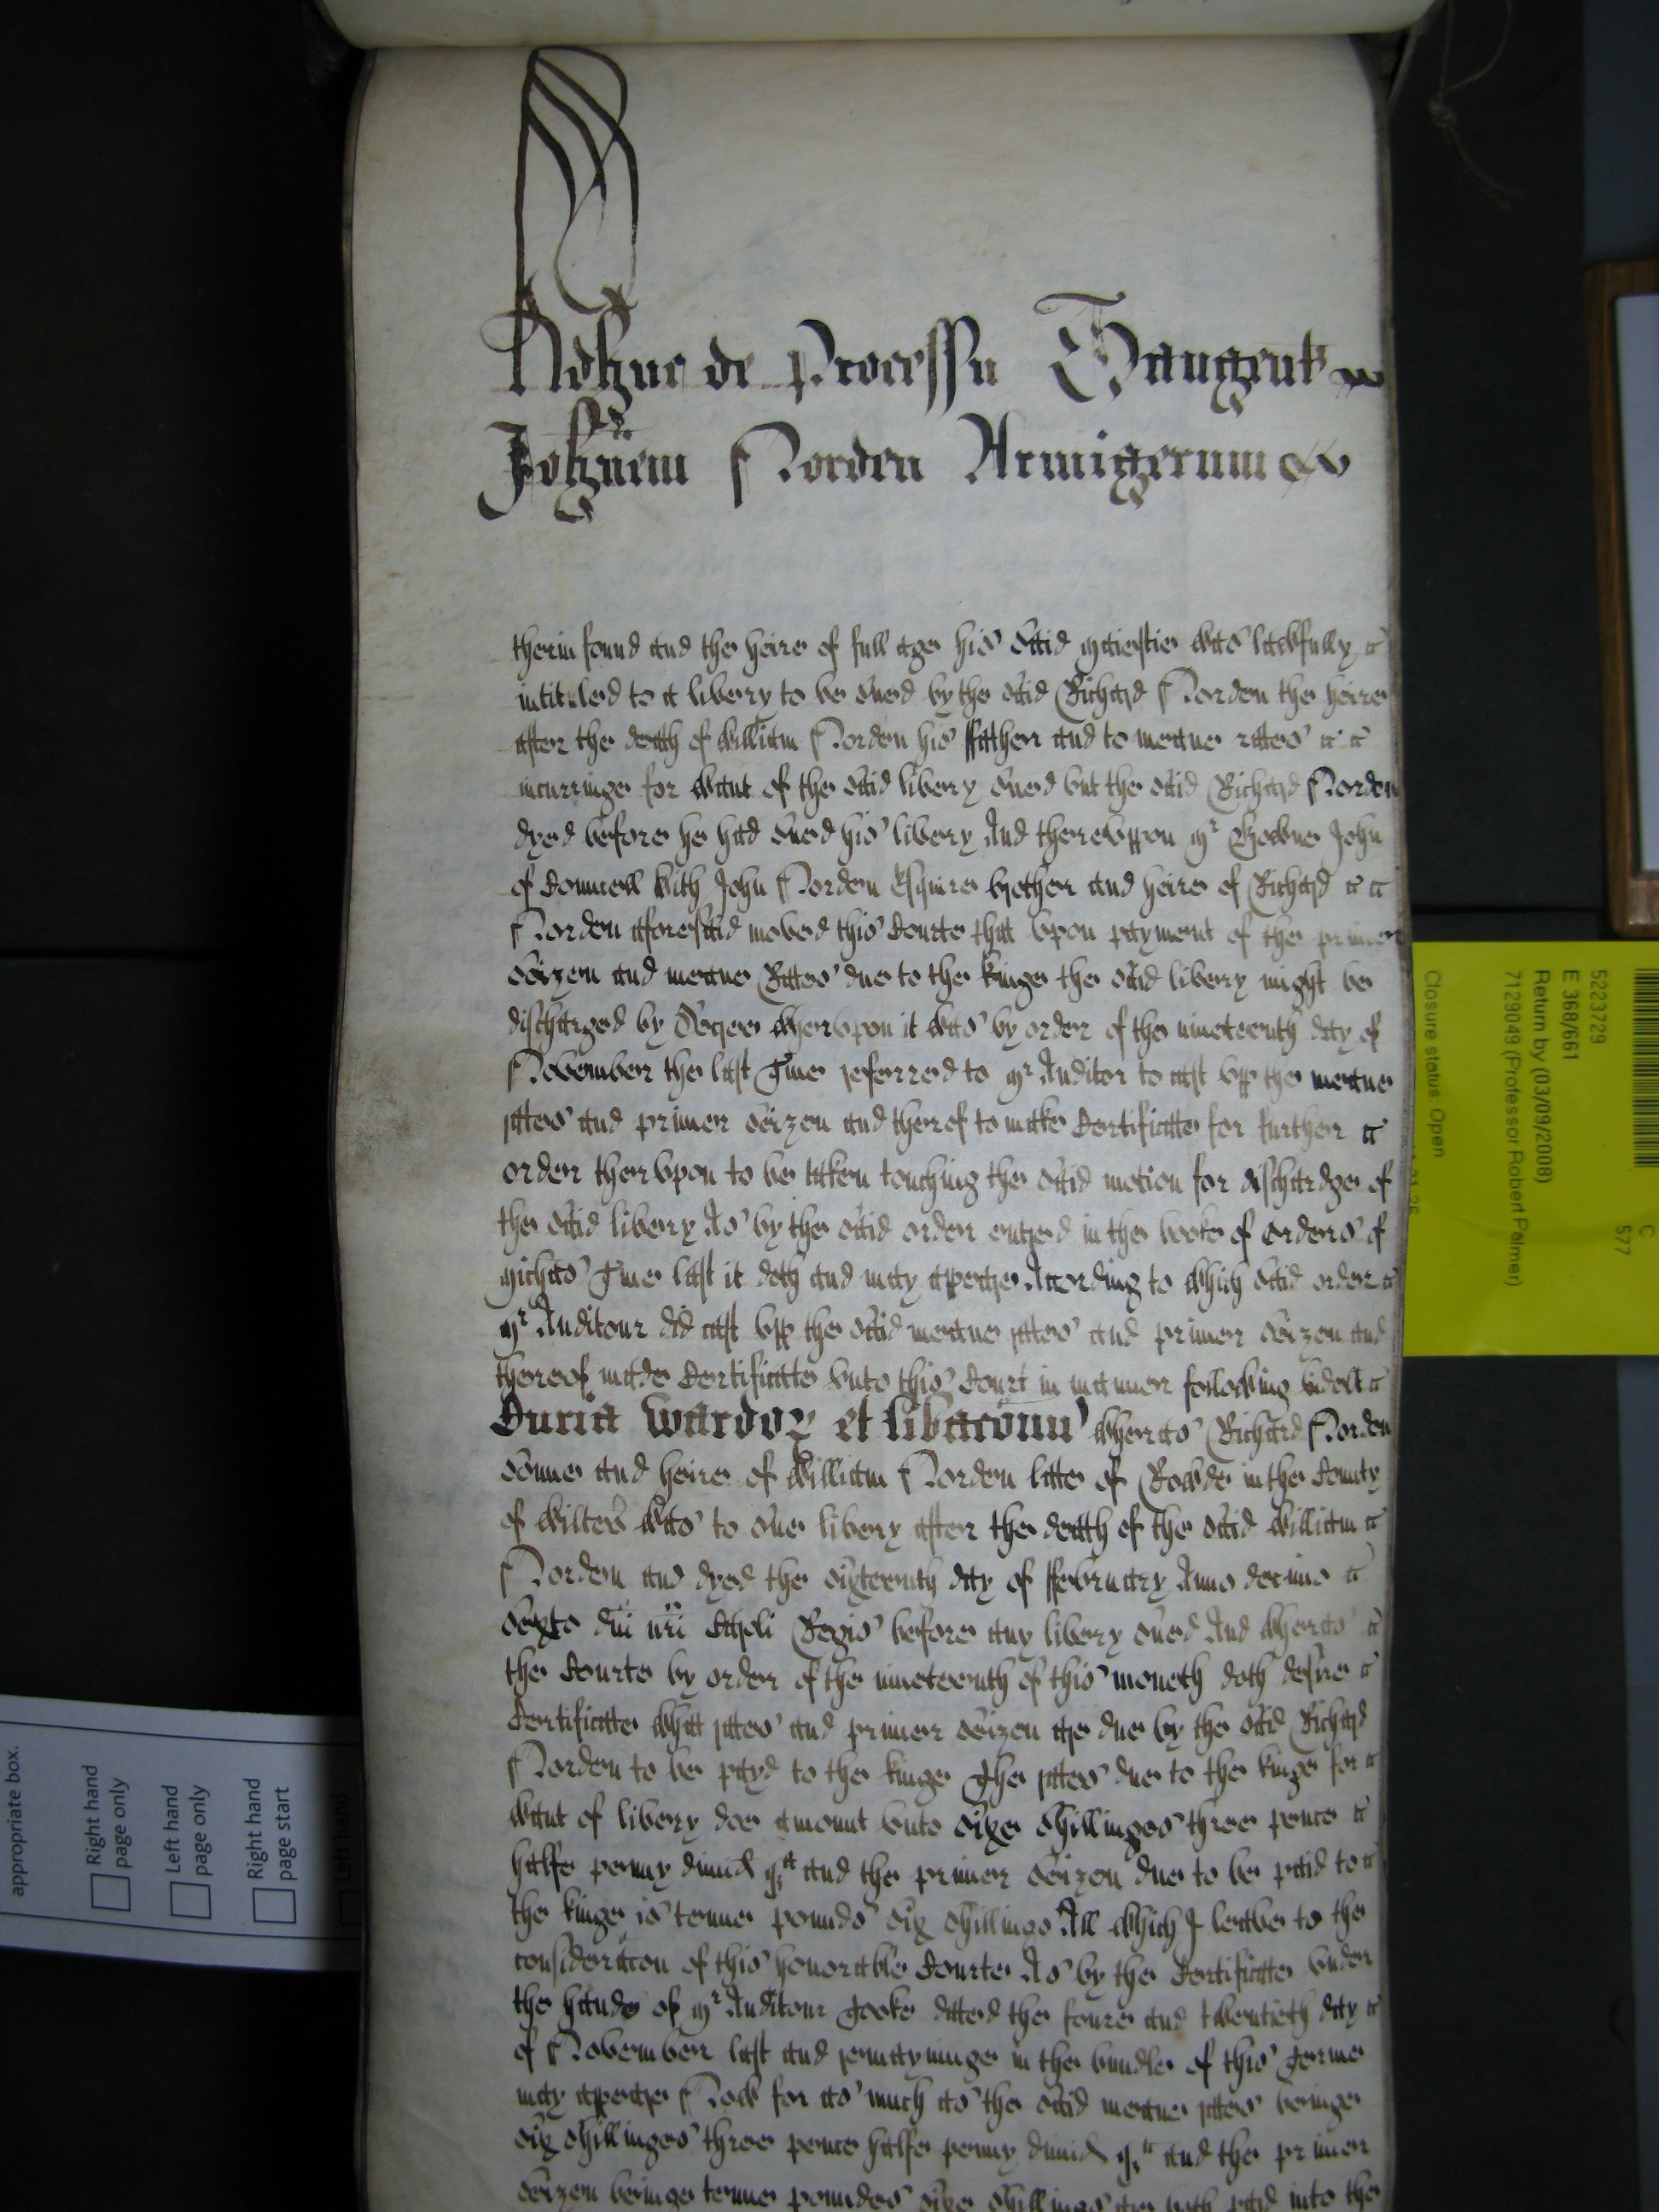 Adhuc de Processu Tangent
Joh̄nem Norden Armigerum
therin found and the heire of full age his said Maiestie was lawfully
intituled to a livery to be sued by the said Richard Norden the heire
after the death of William Norden his ffather and to meane rates
incurringe for want of the said livery sued but the said Richard Norden
dyed before he had sued his livery And therevppon Mr Browne John
of Councell with John Norden Esquire brother and heire of Richard
Norden aforesaid moved this Courte that vpon payment of the primer
seizen and meane Rates due to the kinge the said livery might be
discharged by Decree whervpon it was by order of the nineteenth day of
November the last Tme referred to Mr Auditor to cast vpp the meane
rates and primer seizen and therof to make Certificate for further
order thervpon to be taken touching the said motion for dischardge of
the said livery As by the said order entred in the booke of orders of
Michas Tme last it doth and may apeare According to which said order
Mr Auditour did cast vpp the said meane rates and primer seizen and
thereof made Certificate vnto this Court in manner following videlt
Curia Wardoꝝ et libac̄onu' wheras Richard Norden
sonne and heire of William Norden late of Rowde in the County
of Wiltes was to sue livery after the death of the said William
Norden and dyed the sixteenth day of ffebruary Anno decimo
sexto dni nri Caroli Regis before any livery sued And wheras
the Courte by order of the nineteenth of this moneth doth desire
Certificate what rates and primer seizen are due by the said Richard
Norden to be payd to the kinge The rates due to the kinge for
want of livery doe amount vnto sixe shillinges three pence
halfe penny dimid qa and the primer seizen due to be paid to
the kinge is tenne pounds six shillings All which I leave to the
considerac̄on of this honorable Courte As by the Certificate vnder
the hande of Mr Auditour Tooke dated the foure and twentieth day
of November last and remayninge in the bundle of this Terme
may apeare Now for as much as the said meane rates beinge
six shillinges three pence halfe penny dimid qa and the primer
seizen beinge tenne poundes sixe shillings are both paid into the
appropriate box.
Right hand
page only
Left hand
page only
Right hand
page start
Left hand
C
577
5223729
E 368/661
Return by (03/09/2008)
7129049 (Professor Robert Palmer)
Closure status: Open